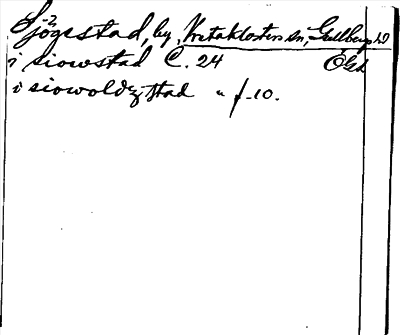 Sjögestad, by, Vretaklosters sn, Gullbergs hd
i siowstad C. 24 Ögtl
i siowoldzstad " f. 10.